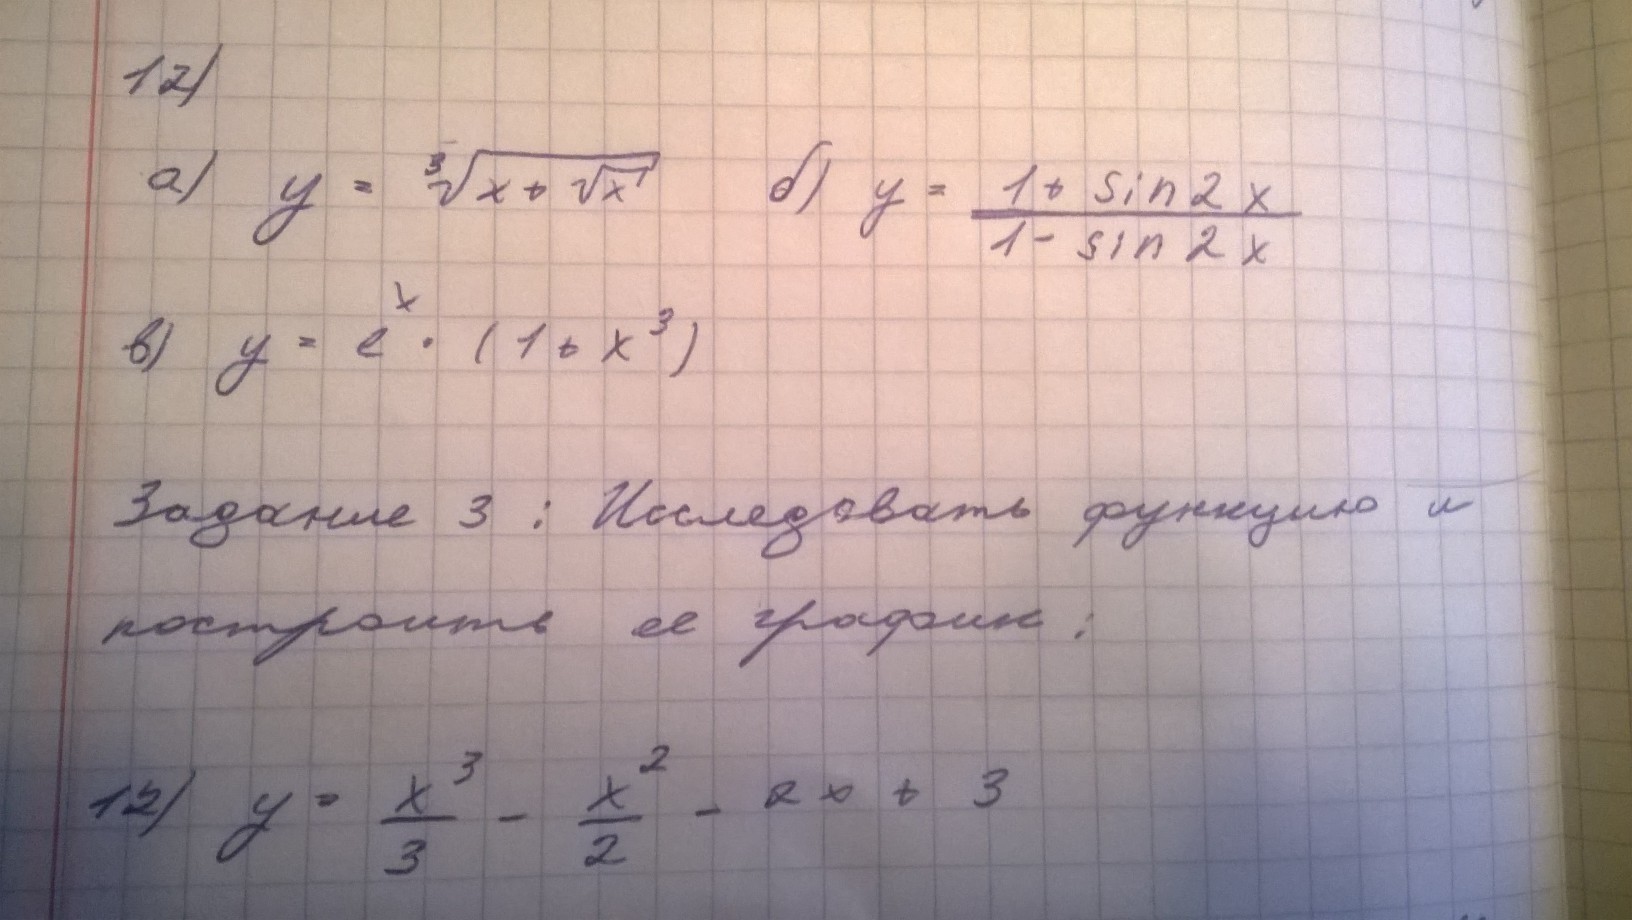 12)
а) y = ∛(x + √x) б) y = (1 + sin 2x)/(1 - sin 2x)
в) y = e^x · (1 + x^3)
Задание 3 : Исследовать функцию и
построить ее график :
12) y = x^3/3 - x^2/2 - 2x + 3